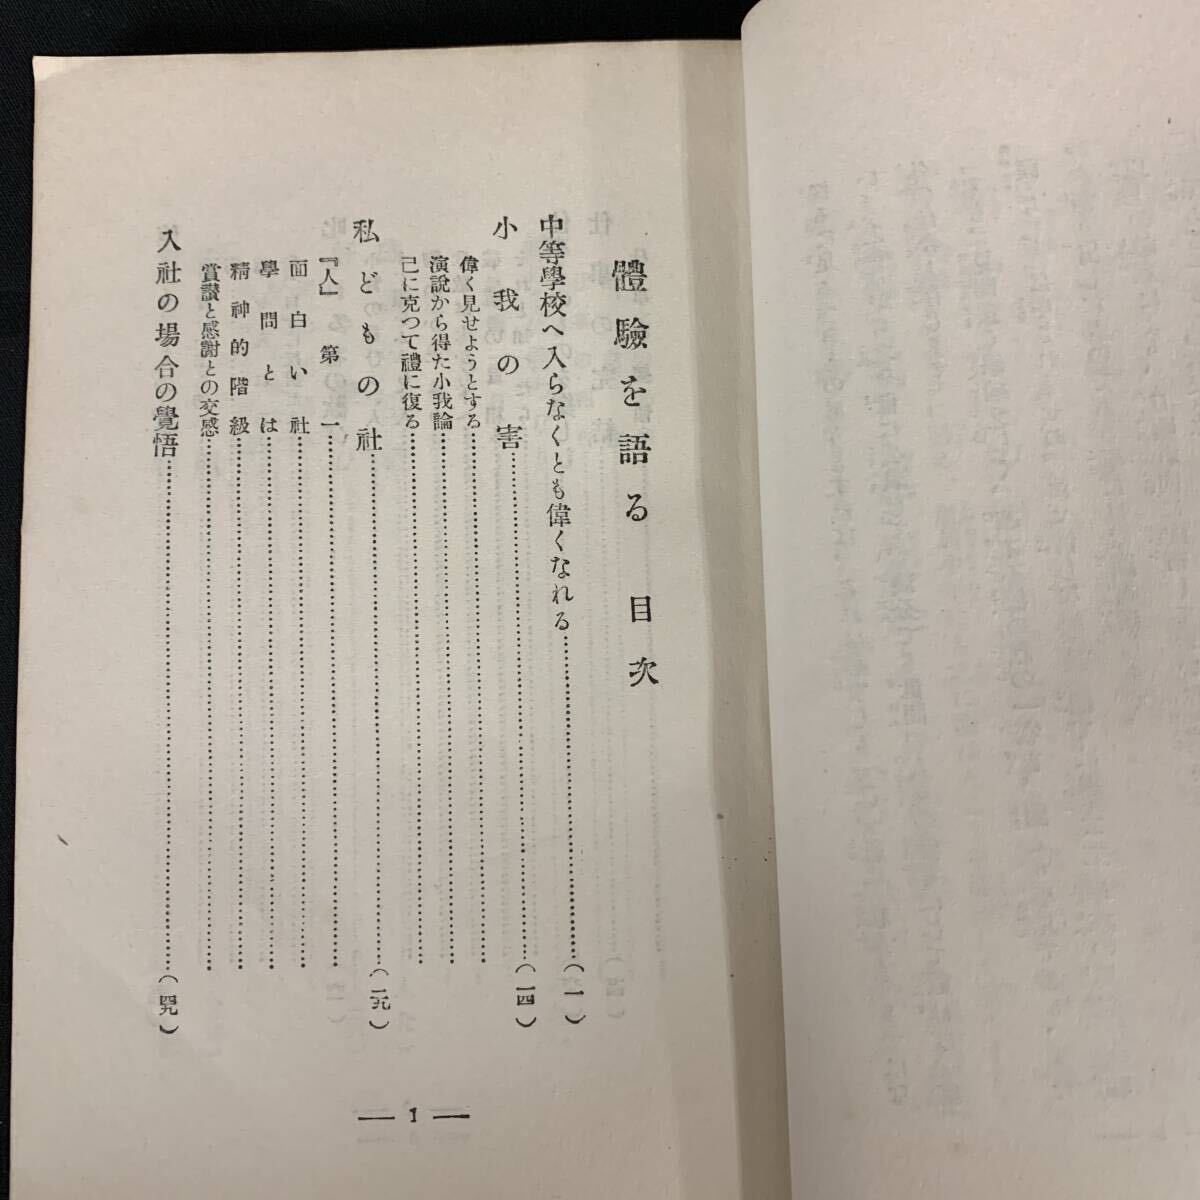 體驗を語る 目次
中等學校へ入らなくとも偉くなれる……(一)
小我の害……(一四)
偉く見せようとする……
演說から得た小我論……
己に克つて禮に復る……
私どもの社……(二九)
『人』第一……
面白い社……
學問とは……
精神的階級……
賞讃と感謝との交感……
入社の場合の覺悟……(四九)
— 1 —